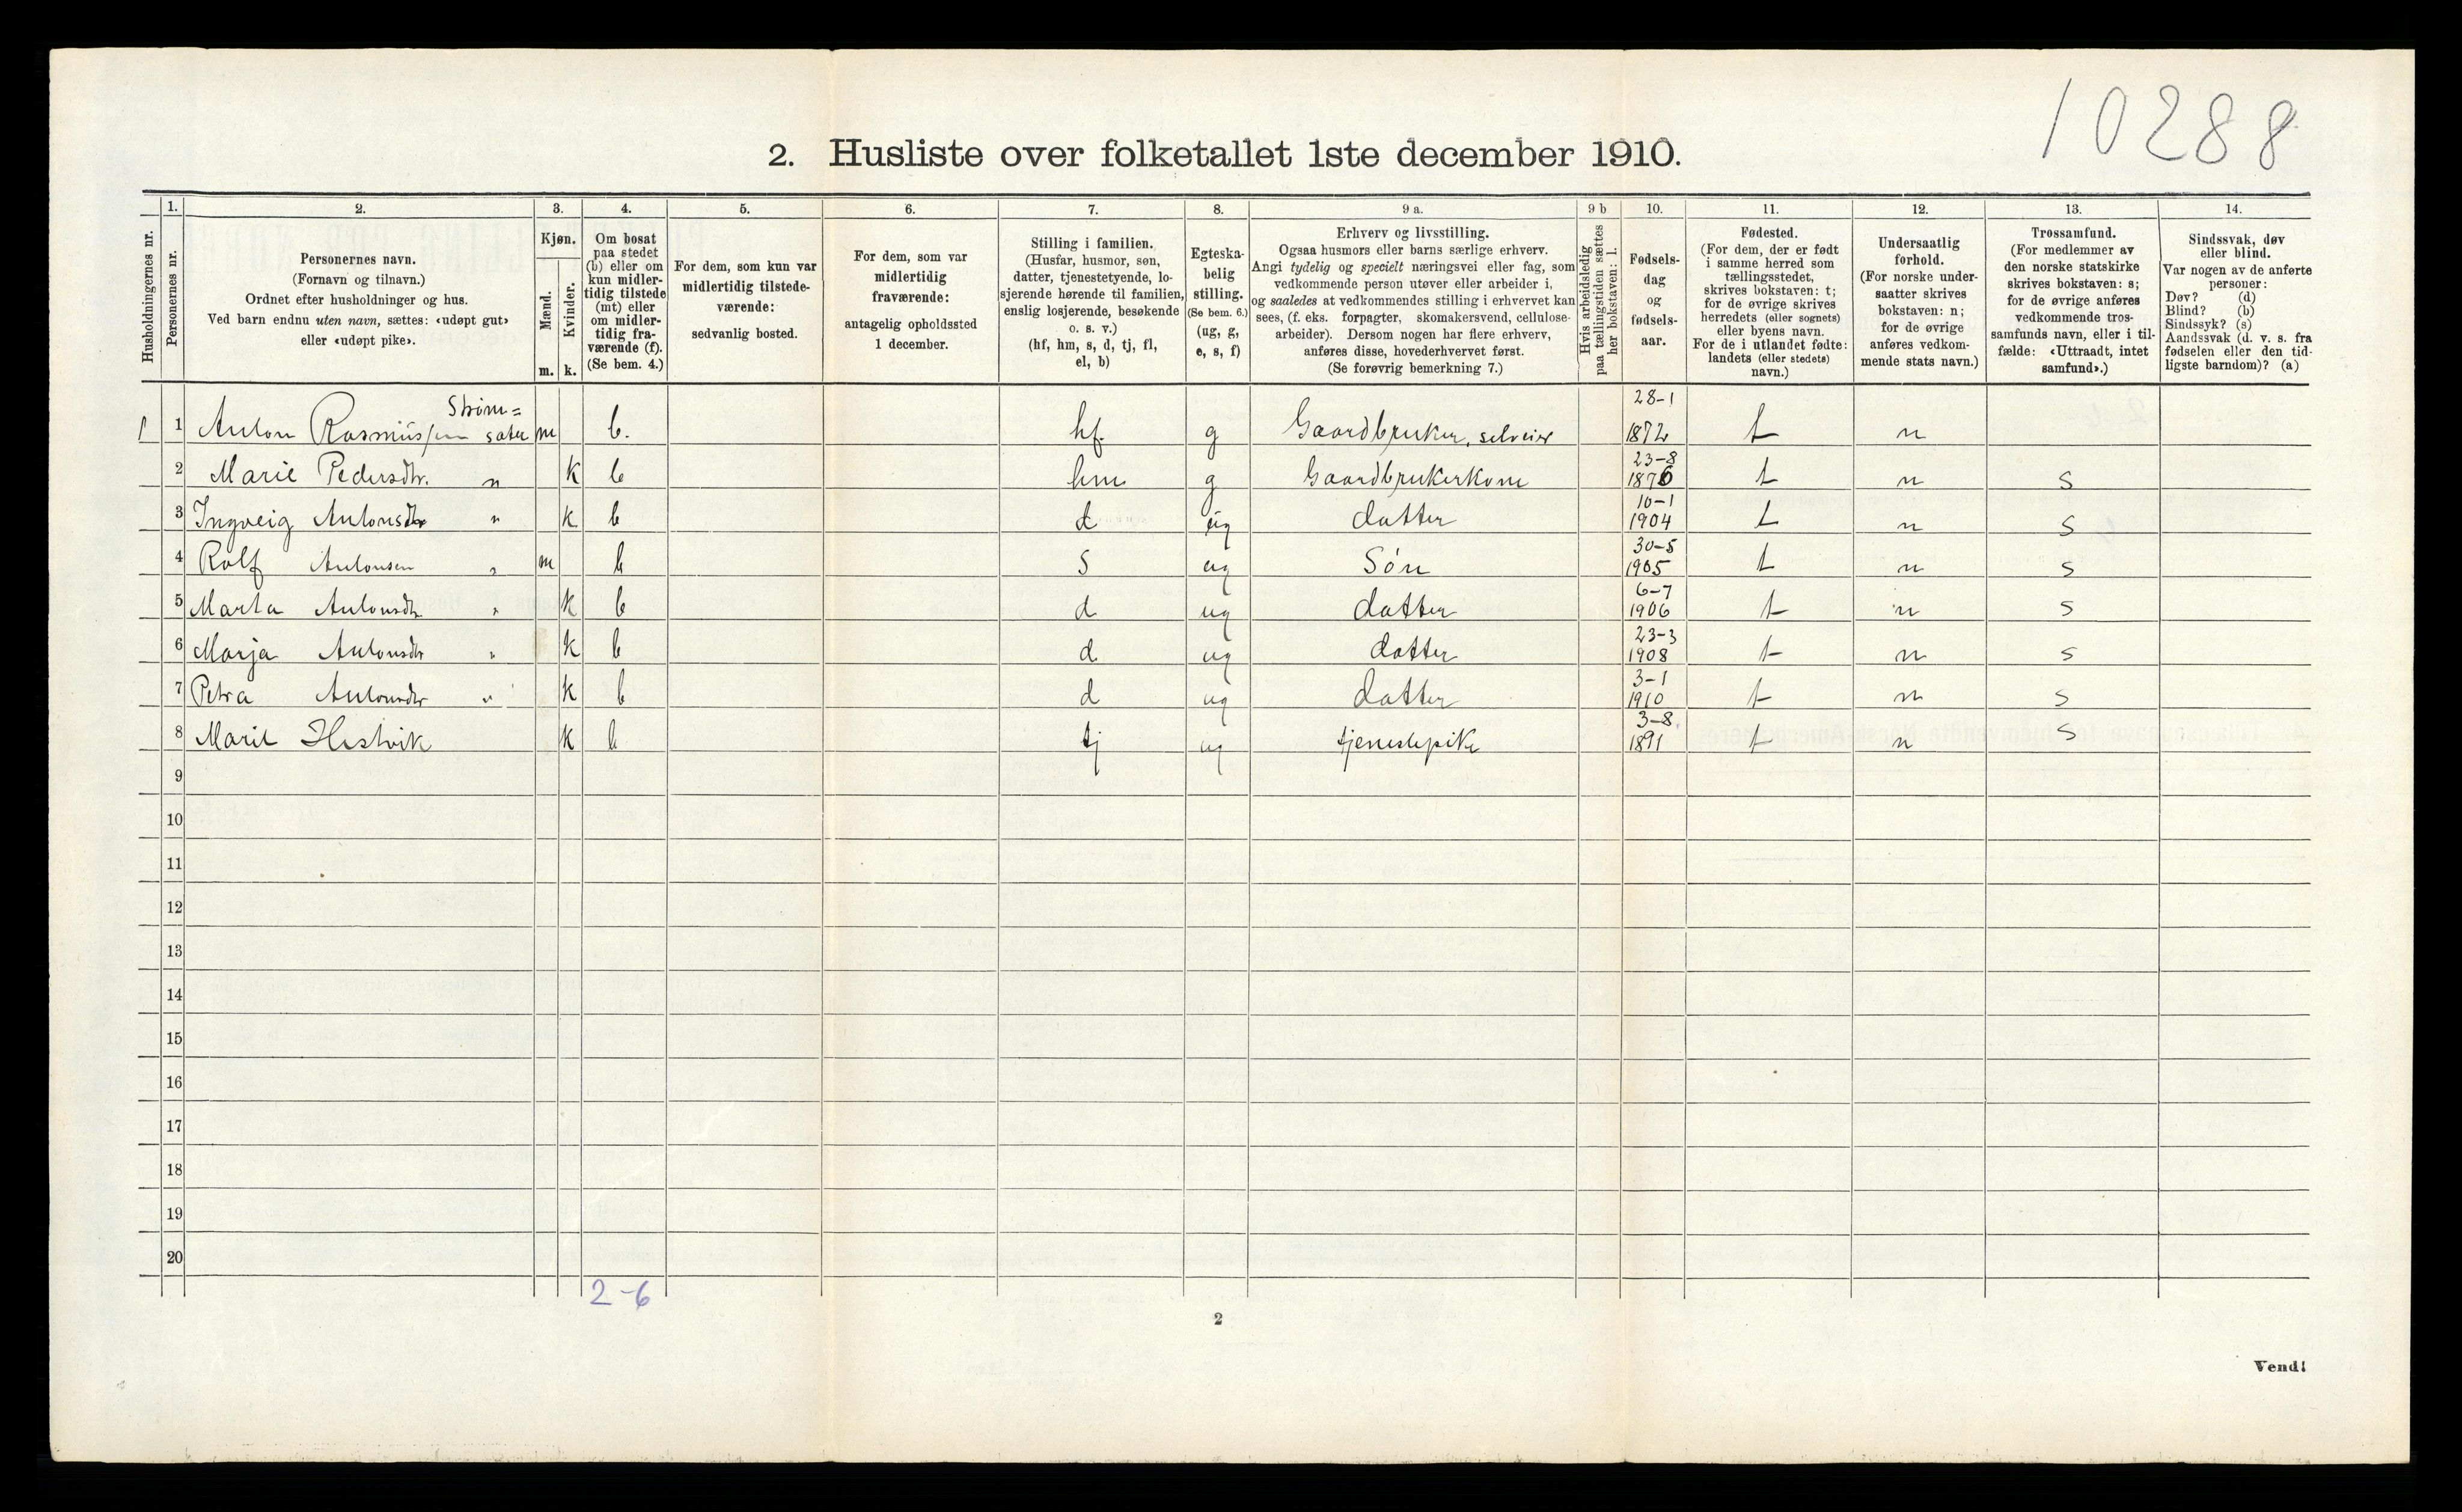 10288
2. Husliste over folketallet 1ste december 1910.
Husholdningernes nr.
1.
Personernes nr.
2.
Personernes navn.
(Fornavn og tilnavn.)
Ordnet efter husholdninger og hus.
Ved barn endnu uten navn, sættes: «udøpt gut»
eller «udøpt pike».
3.
Kjøn.
Mænd.
Kvinder.
m. k.
4.
Om bosat
paa stedet
(b) eller om
kun midler-
tidig tilstede
(mt) eller
om midler-
tidig fra-
værende (f).
(Se bem. 4.)
5.
For dem, som kun var
midlertidig tilstede-
værende:
sedvanlig bosted.
6.
For dem, som var
midlertidig
fraværende:
antagelig opholdssted
1 december.
7.
Stilling i familien.
(Husfar, husmor, søn,
datter, tjenestetyende, lo-
sjerende hørende til familien,
enslig losjerende, besøkende
o. s. v.)
(hf, hm, s, d, tj, fl,
el, b)
8.
Egteska-
belig
stilling.
(Se bem. 6.)
(ug, g,
e, s, f)
9 a.
Erhverv og livsstilling.
Ogsaa husmors eller barns særlige erhverv.
Angi tydelig og specielt næringsvei eller fag, som
vedkommende person utøver eller arbeider i,
og saaledes at vedkommendes stilling i erhvervet kan
sees, (f. eks. forpagter, skomakersvend, cellulose-
arbeider). Dersom nogen har flere erhverv,
anføres disse, hovederhvervet først.
(Se forøvrig bemerkning 7.)
9 b
Hvis arbeidsledig
paa tællingstiden sættes
her bokstaven: l.
10.
Fødsels-
dag
og
fødsels-
aar.
11.
Fødested.
(For dem, der er født
i samme herred som
tællingsstedet,
skrives bokstaven: t;
for de øvrige skrives
herredets (eller sognets)
eller byens navn.
For de i utlandet fødte:
landets (eller stedets)
navn.)
12.
Undersaatlig
forhold.
(For norske under-
saatter skrives
bokstaven: n;
for de øvrige
anføres vedkom-
mende stats navn.)
13.
Trossamfund.
(For medlemmer av
den norske statskirke
skrives bokstaven: s;
for de øvrige anføres
vedkommende tros-
samfunds navn, eller i til-
fælde: «Uttraadt, intet
samfund».)
14.
Sindssvak, døv
eller blind.
Var nogen av de anførte
personer:
Døv? (d)
Blind? (b)
Sindssyk? (s)
Aandssvak (d. v. s. fra
fødselen eller den tid-
ligste barndom)? (a)
Strøm= 28-1
1 1 Anton Rasmussen sæter m b. hf. g Gaardbruker, selveier 1872 t n
23-8
2 Marie Pedersdtr. " k b hm g Gaardbrukerkone 1876 t n s
10-1
3 Ingveig Antonsdtr " k b d ug datter 1904 t n s
30-5
4 Rolf Antonsen " m b s ug Søn 1905 t n s
6-7
5 Marta Antonsdtr " k b d ug datter 1906 t n s
23-3
6 Marja Antonsdtr " k b d ug datter 1908 t n s
3-1
7 Petra Antonsdtr " k b d ug datter 1910 t n s
3-8
8 Marit Hestvik k b tj ug tjenestepike 1891 t n s
9
10
11
12
13
14
15
16
17
18
19
20
2-6
2
Vend!